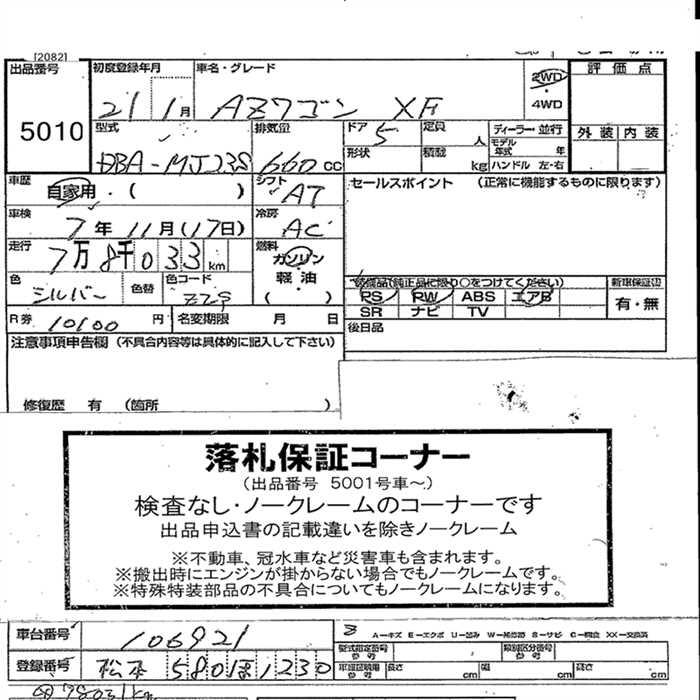 [2082]
出品番号 初度登録年月 車名・グレード 2WD 評価点
21 1月 AZワゴン XF 4WD
5010 型式 排気量 ドア 定員 ディーラー・並行 外装 内装
DBA-MJ23S 660cc 5 人 モデル年式 年
形状 積載 kg ハンドル 左・右
車歴 自家用・( ) シフト AT セールスポイント (正常に機能するものに限ります)
車検 7年11月(17日) 冷房 AC
走行 7万8千033km 燃料 ガソリン
軽油
( )
色 シルバー 色替 色コード Z2S
装備品(純正品に限り○をつけてください) 新車保証書
PS PW ABS エアB 有・無
SR ナビ TV
R券 10100円 名変期限 月 日 後日品
注意事項申告欄(不具合内容等は具体的に記入して下さい)
修復歴 有 (箇所 )
落札保証コーナー
(出品番号 5001号車~)
検査なし・ノークレームのコーナーです
出品申込書の記載違いを除きノークレーム
※不動車、冠水車など災害車も含まれます。
※搬出時にエンジンが掛からない場合でもノークレームです。
※特殊特装部品の不具合についてもノークレームになります。
車台番号 106921 A−キズ E−エクボ U−凹み W−補修跡 S−サビ C−腐食 XX−交換済
型式指定番号 参考 類別区分番号 参考
登録番号 松本 580 ほ 1230 車検証積用参考 長さ cm 幅 cm 高さ cm
78031km